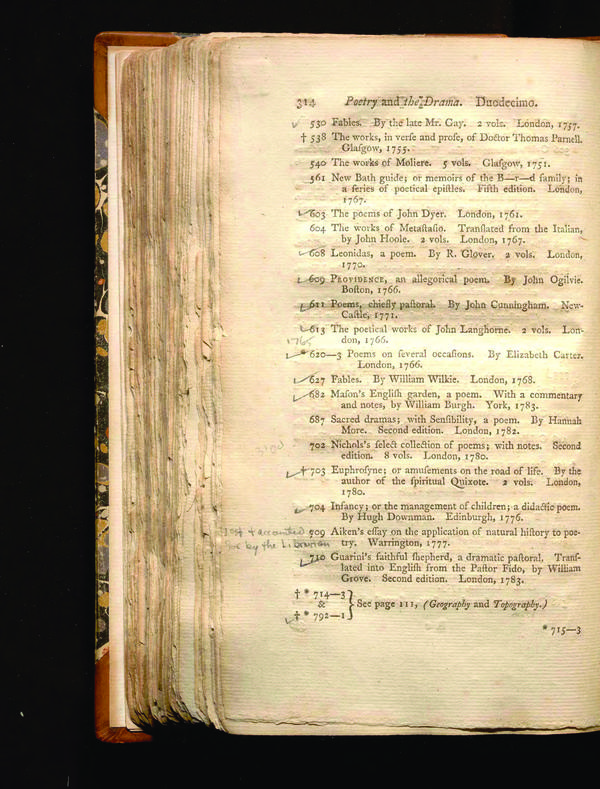 314 Poetry and the Drama. Duodecimo.
530 Fables. By the late Mr. Gay. 2 vols. London, 1757.
† 538 The works, in verſe and proſe, of Doctor Thomas Parnell.
Glaſgow, 1755.
540 The works of Moliere. 5 vols. Glaſgow, 1751.
561 New Bath guide; or memoirs of the B—r—d family; in
a ſeries of poetical epiſtles. Fifth edition. London,
1767.
603 The poems of John Dyer. London, 1761.
604 The works of Metaſtaſio. Tranſlated from the Italian,
by John Hoole. 2 vols. London, 1767.
608 Leonidas, a poem. By R. Glover. 2 vols. London,
1770.
609 Providence, an allegorical poem. By John Ogilvie.
Boſton, 1766.
611 Poems, chiefly paſtoral. By John Cunningham. New-
Caſtle, 1771.
613 The poetical works of John Langhorne. 2 vols. Lon-
don, 1766.
1765
* 620—3 Poems on ſeveral occaſions. By Elizabeth Carter.
London, 1766.
627 Fables. By William Wilkie. London, 1768.
682 Maſon's Engliſh garden, a poem. With a commentary
and notes, by William Burgh. York, 1783.
687 Sacred dramas; with Senſibility, a poem. By Hannah
More. Second edition. London, 1782.
702 Nichols's ſelect collection of poems; with notes. Second
edition. 8 vols. London, 1780.
† 703 Euphroſyne; or amuſements on the road of life. By the
author of the ſpiritual Quixote. 2 vols. London,
1780.
704 Infancy; or the management of children; a didactic poem.
By Hugh Downman. Edinburgh, 1776.
Lost & accounted 509 Aiken's eſſay on the application of natural hiſtory to poe-
for by the Librarian try. Warrington, 1777.
710 Guarini's faithful ſhepherd, a dramatic paſtoral. Tranſ-
lated into Engliſh from the Paſtor Fido, by William
Grove. Second edition. London, 1783.
† * 714—3
& } See page 111, (Geography and Topography.)
† * 792—1
* 715—3